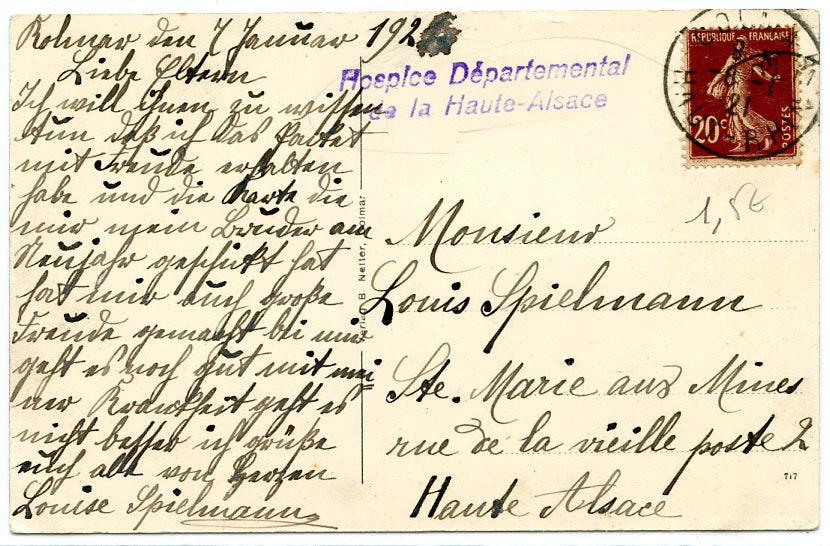 Kolmar den 7 Januar 192
Liebe Eltern
Ich will ihnen zu wissen
tun daß ich das Packet
mit Freude erhalten
habe und die Karte die
mir mein Bruder am
Neujahr geschickt hat
hat mir auch große
Freude gemacht bei mir
geht es noch gut mit mei
ner Krankheit geht es
nicht besser ich grüße
euch alle von Herzen
Louise Spielmann
Hospice Départemental
de la Haute-Alsace
REPUBLIQUE FRANÇAISE
20c
POSTES
21
1,5€
B. Netter, Colmar
Monsieur
Louis Spielmann
Ste. Marie aux Mines
rue de la vieille poste 2
Haute Alsace
717